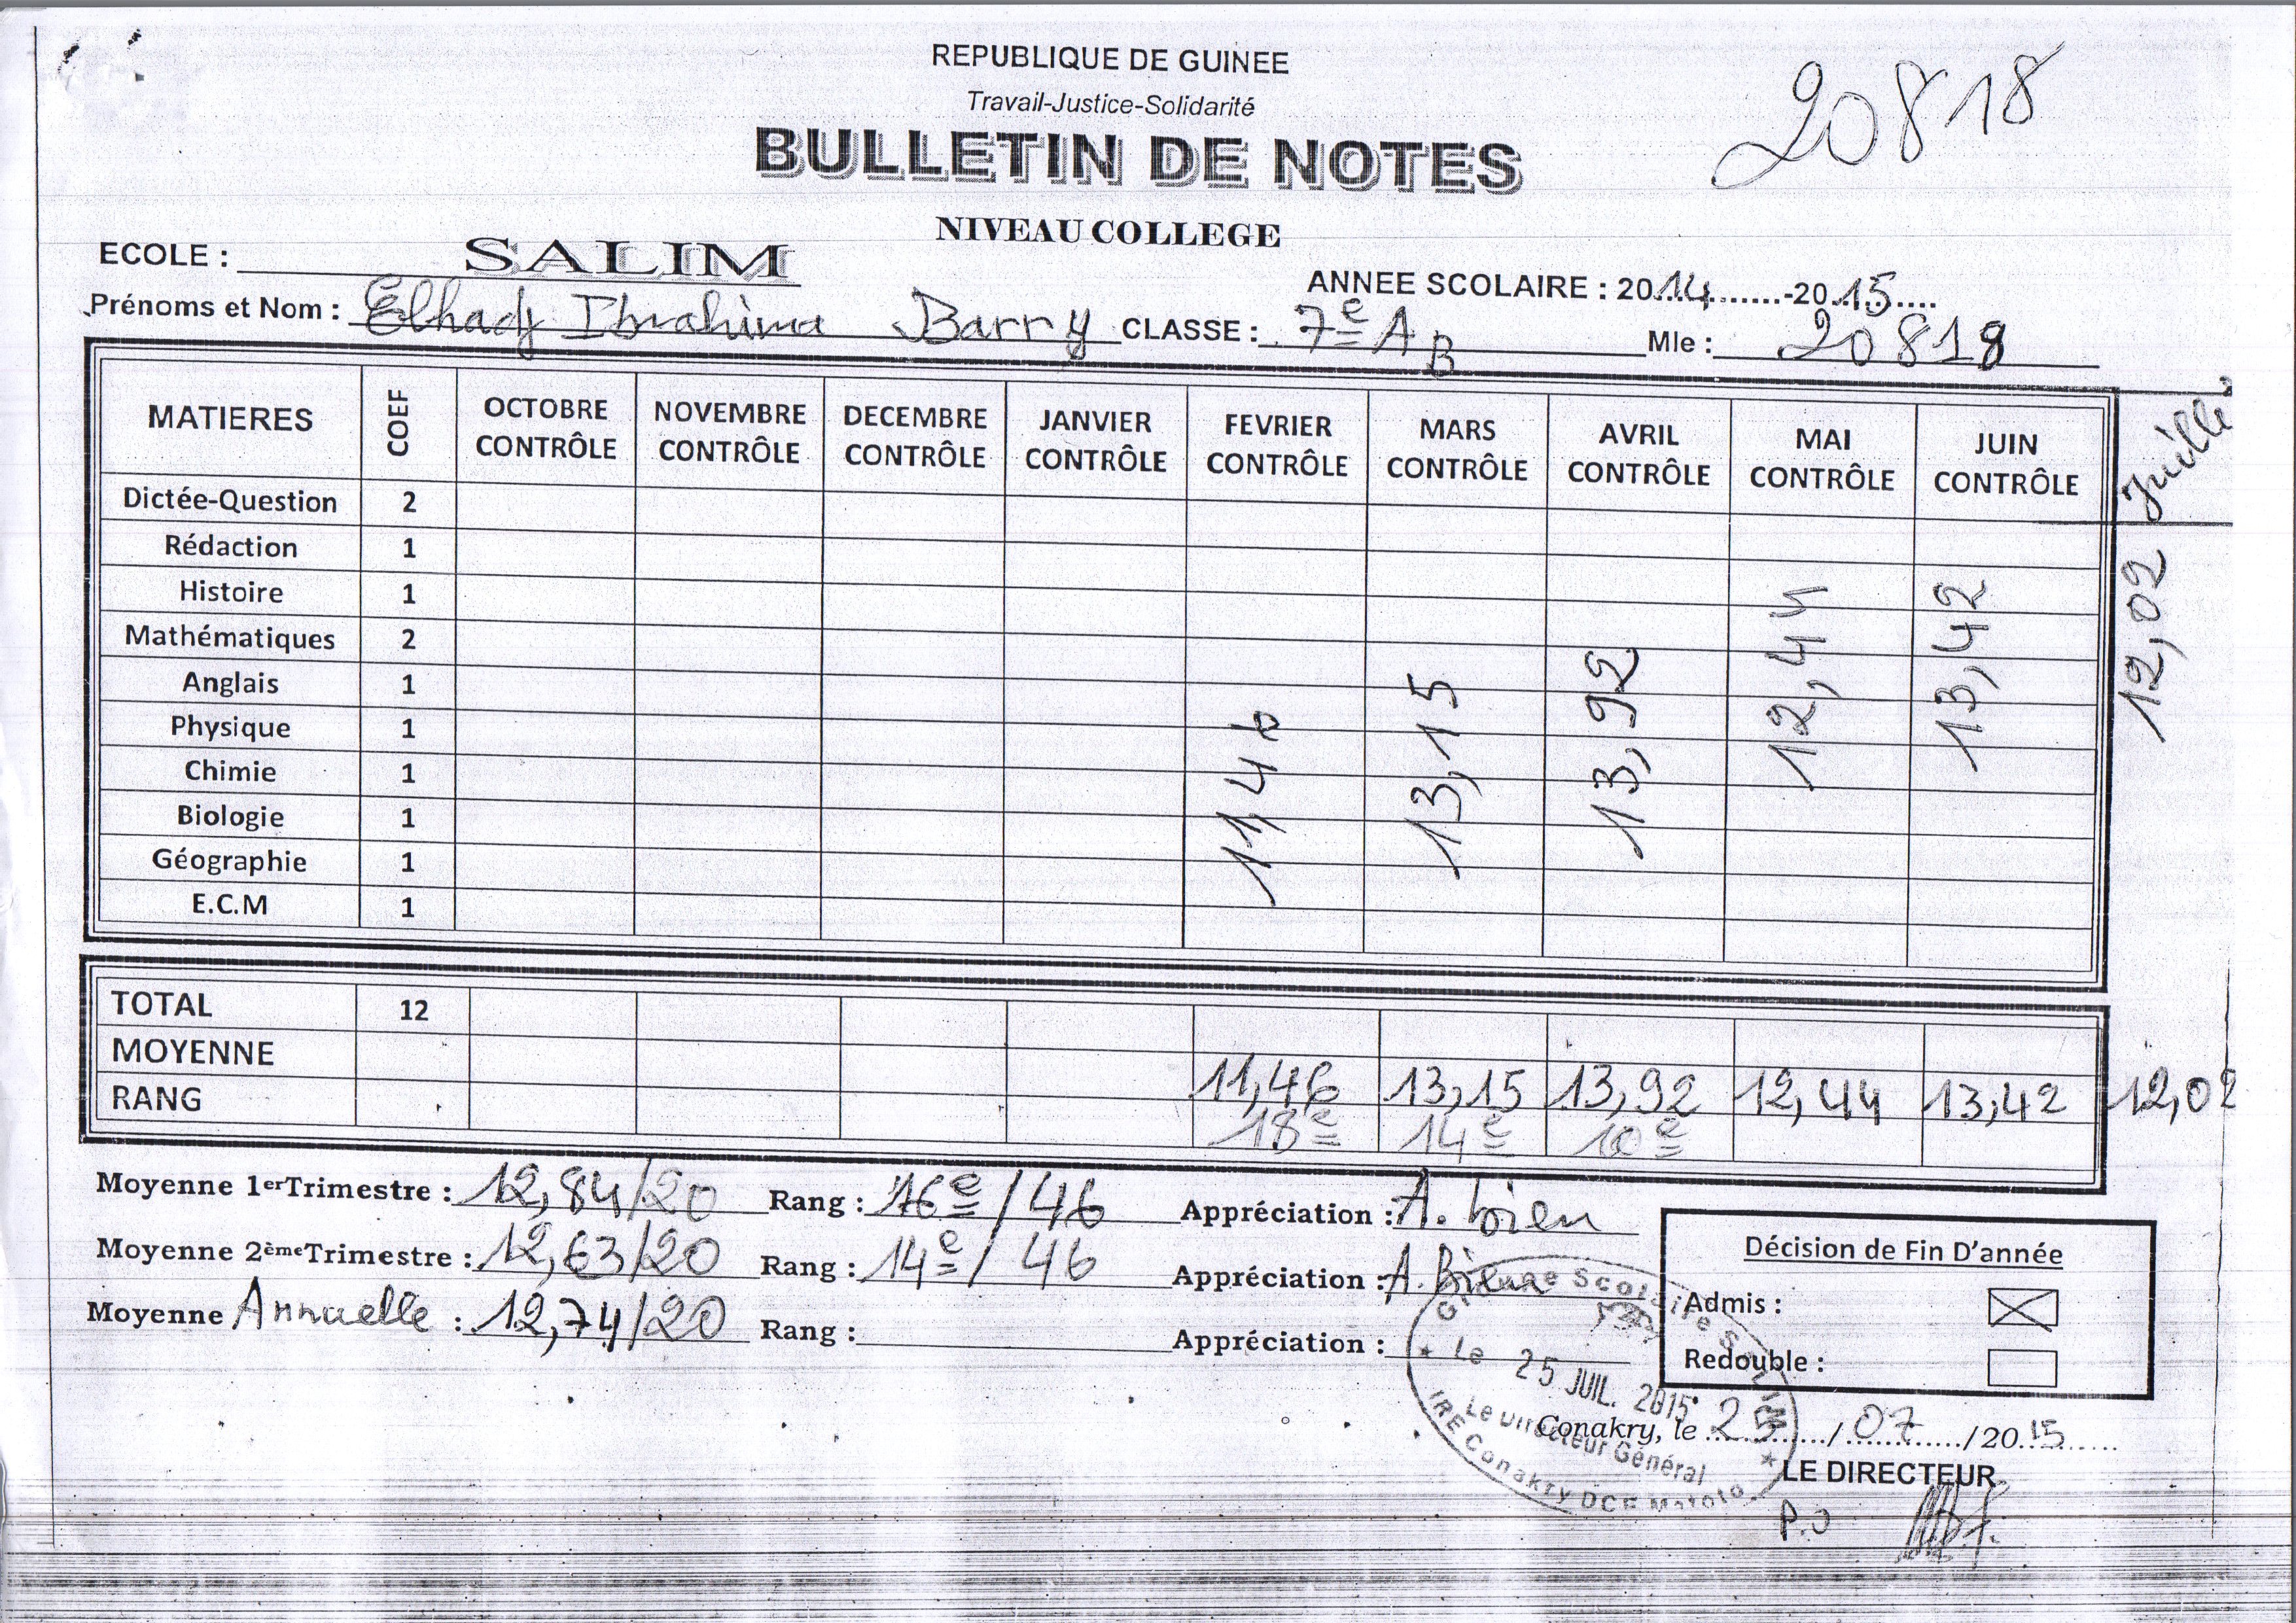 REPUBLIQUE DE GUINEE
Travail-Justice-Solidarité
20818
BULLETIN DE NOTES
NIVEAU COLLEGE
ECOLE : SALIM
ANNEE SCOLAIRE : 2014-2015
Prénoms et Nom : Elhadj Ibrahima Barry CLASSE : 7e A B Mle : 20818
MATIERES COEF OCTOBRE CONTRÔLE NOVEMBRE CONTRÔLE DECEMBRE CONTRÔLE JANVIER CONTRÔLE FEVRIER CONTRÔLE MARS CONTRÔLE AVRIL CONTRÔLE MAI CONTRÔLE JUIN CONTRÔLE Juille
Dictée-Question 2
Rédaction 1
Histoire 1
Mathématiques 2
Anglais 1
Physique 1
Chimie 1
Biologie 1
Géographie 1
E.C.M 1
11,46 13,15 13,92 12,44 13,42 12,02
TOTAL 12
MOYENNE 11,46 13,15 13,92 12,44 13,42 12,02
RANG 18e 14e 10e
Moyenne 1erTrimestre : 12,84/20 Rang : 16e/46 Appréciation : A. bien
Moyenne 2èmeTrimestre : 12,63/20 Rang : 14e/46 Appréciation : A. Bien
Moyenne Annuelle : 12,74/20 Rang : Appréciation :
Décision de Fin D'année
Admis :
Redouble :
Groupe Scolaire SALIM
Le 25 JUIL. 2015
Le Directeur Général
IRE Conakry DCE Matoto
Conakry, le 25/07/2015
LE DIRECTEUR
P.O